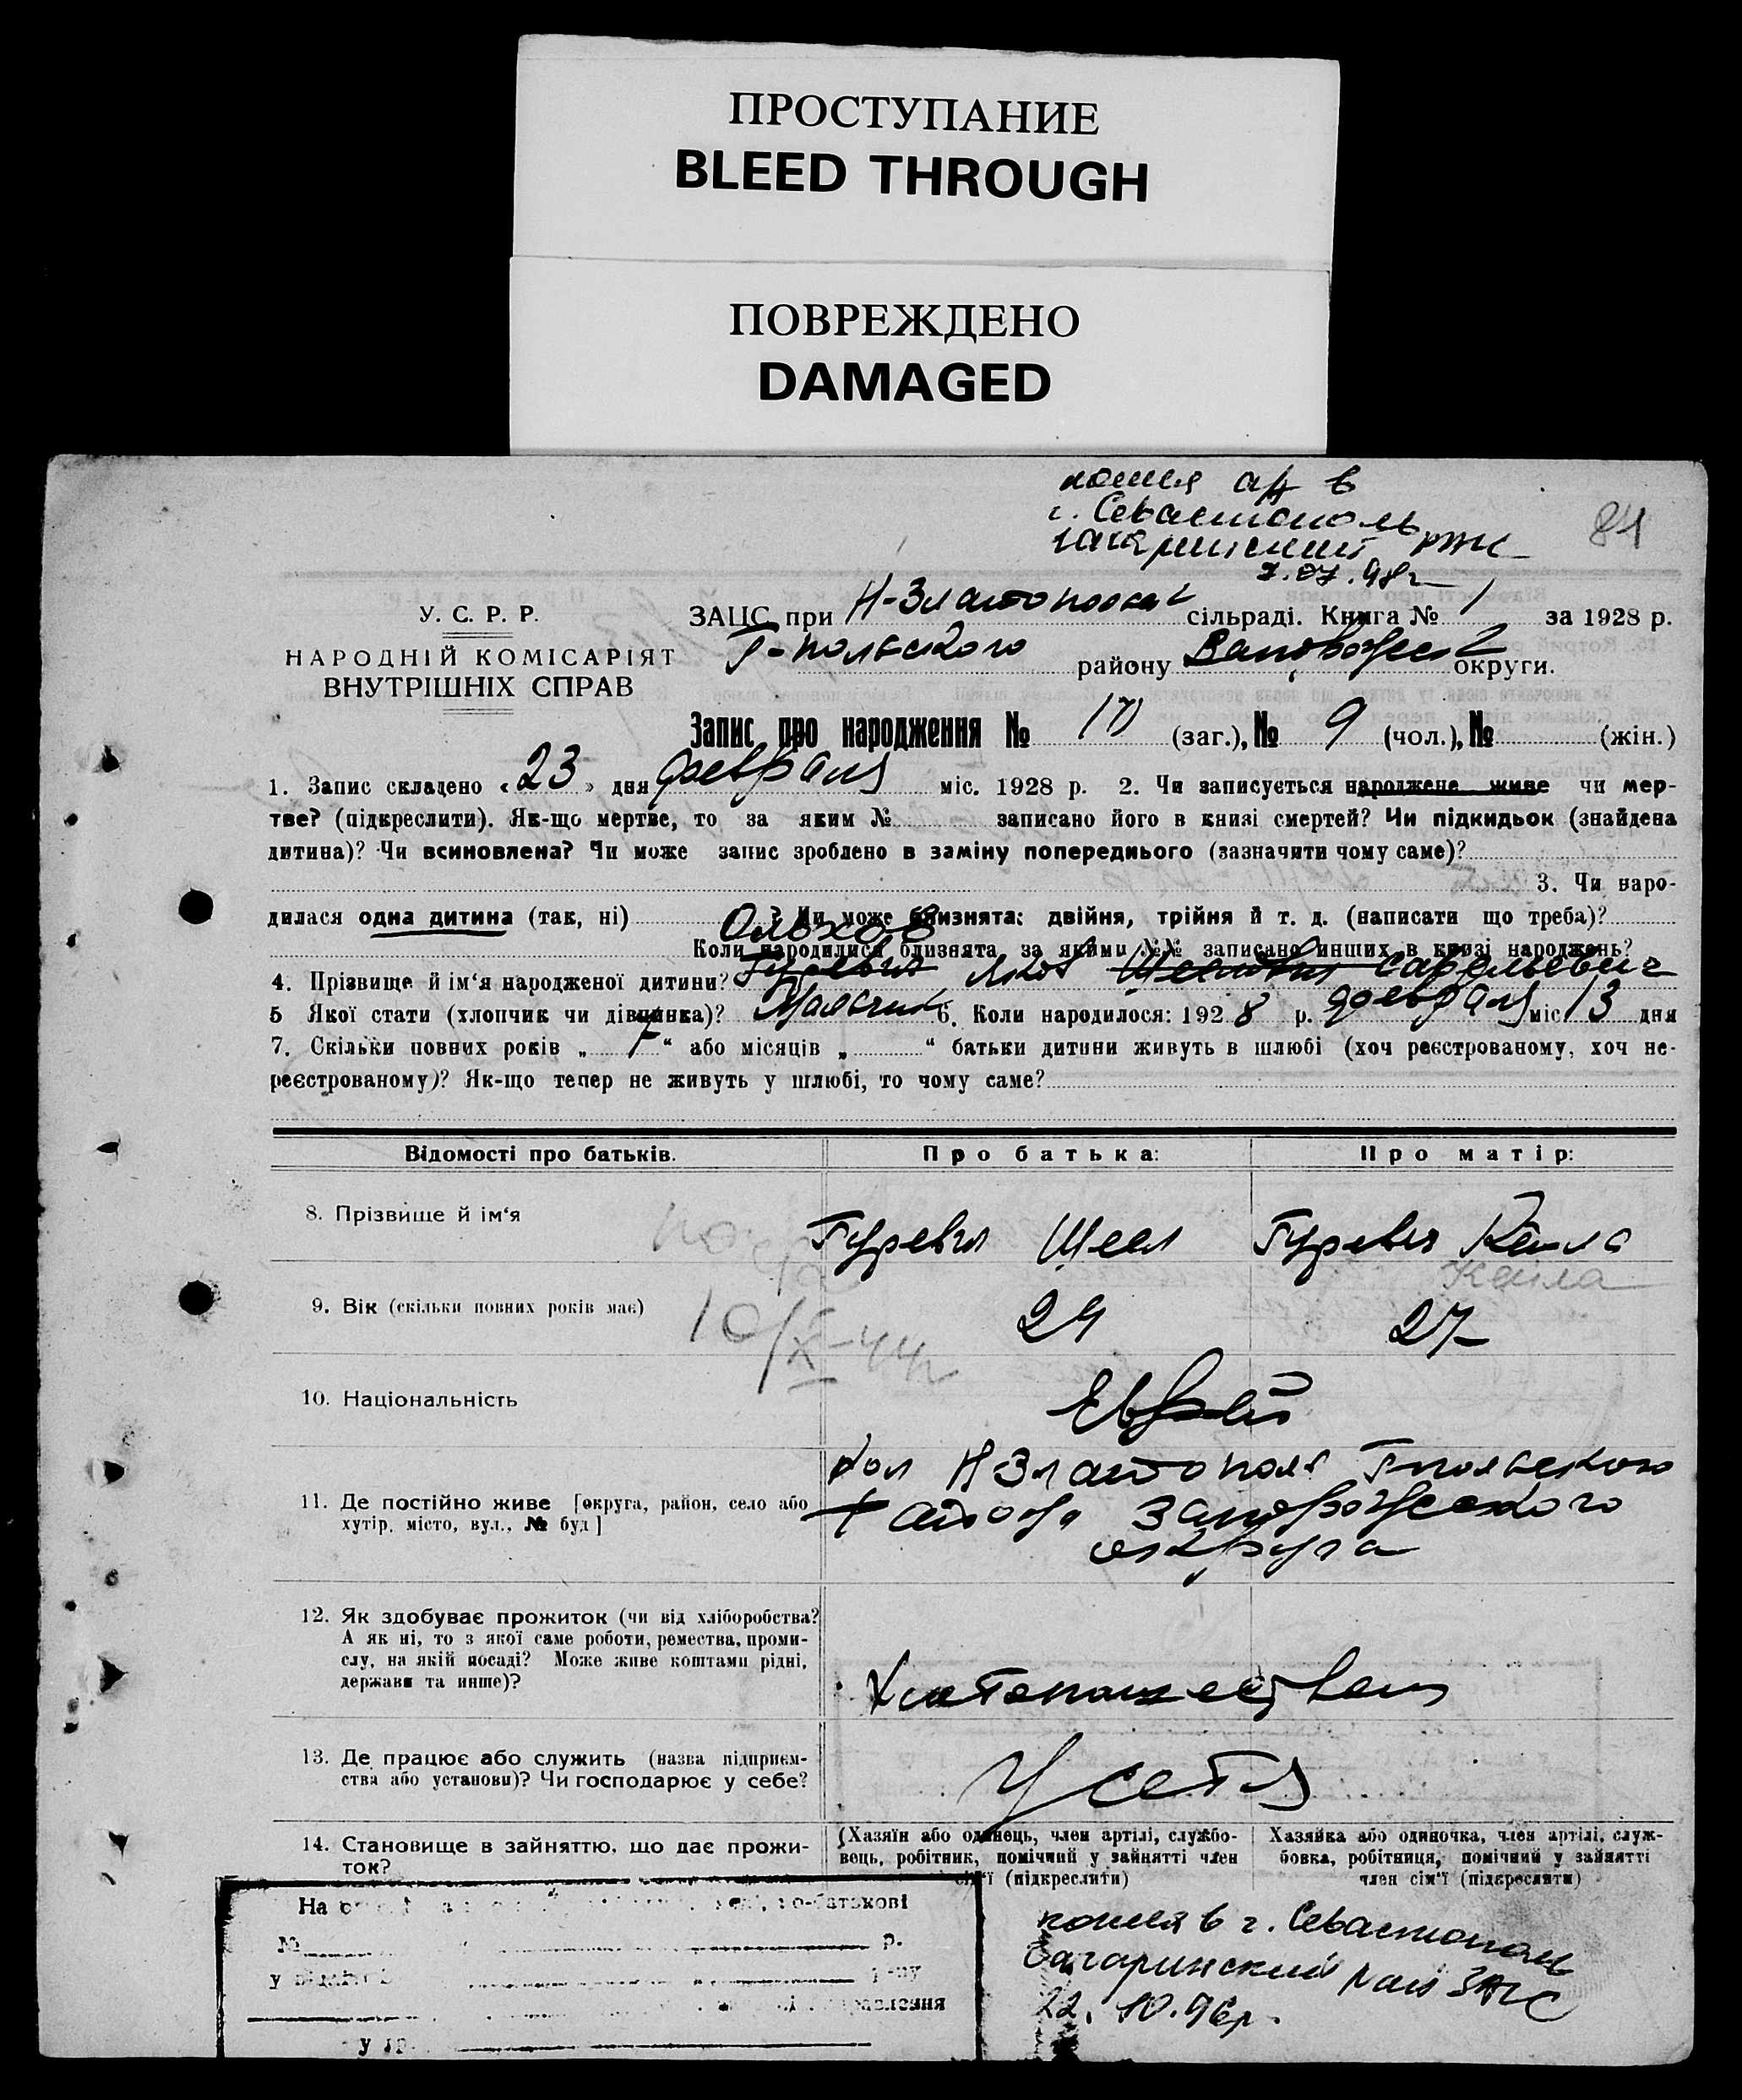 ПРОСТУПАНИЕ
BLEED THROUGH
ПОВРЕЖДЕНО
DAMAGED
копия а/з в
г. Севастополь
7.07.98г
84
У. С. Р. Р.
НАРОДНІЙ КОМІСАРІЯТ
ВНУТРІШНІХ СПРАВ
ЗАЦС при Н-Златопольск сільраді. Книга № 1 за 1928 р.
Г-польского району Запорожск округи.
Запис про народження № 10 (заг.), № 9 (чол.), № (жін.)
1. Запис складено « 23 » дня февраля міс. 1928 р. 2. Чи записується народжене живе чи мер-
тве? (підкреслити). Як-що мертве, то за яким № записано його в книзі смертей? Чи підкидьок (знайдена
дитина)? Чи всиновлена? Чи може запис зроблено в заміну попереднього (зазначити чому саме)?
3. Чи наро-
дилася одна дитина (так, ні) ? Чи може близнята: двійня, трійня й т. д. (написати що треба)?
Коли народилися близнята за якими №№ записано инших в книзі народжень?
4. Прізвище й ім‘я народженої дитини? Гуревич
5 Якої стати (хлопчик чи дівчинка)? Мальчик 6. Коли народилося: 1928 р. февраля міс 13 дня
7. Скільки повних років „ 7 “ або місяців „ “ батьки дитини живуть в шлюбі (хоч реєстрованому, хоч не-
реєстрованому)? Як-що тепер не живуть у шлюбі, то чому саме?
Відомості про батьків. Про батька: Про матір:
8. Прізвище й ім‘я Гуревич Шеел Гуревич Кейла
Кейла
9. Вік (скільки повних років має) 29 27
10/X-44г
10. Національність Еврей
кол Н-Златополь Гпольского
11. Де постійно живе [округа, район, село або
хутір, місто, вул., № буд]
района Запорожского
округа
12. Як здобуває прожиток (чи від хліборобства?
А як ні, то з якої саме роботи, ремества, проми-
слу, на якій посаді? Може живе коштами рідні,
держави та инше)?
Хлебопашеством
13. Де працює або служить (назва підприєм-
ства або установи)? Чи господарює у себе?
У себя
14. Становище в зайняттю, що дає прожи-
ток?
(Хазяїн або одинець, член артілі, службо-
вець, робітник, помічний у зайнятті член
сім‘ї (підкреслити)
Хазяйка або одиночка, член артілі, служ-
бовка, робітниця, помічний у зайнятті
член сім‘ї (підкреслити)
На
№ р.
у
у
копия в г. Севастополь
Гагаринский рай ЗАГС
22. 10. 96г.